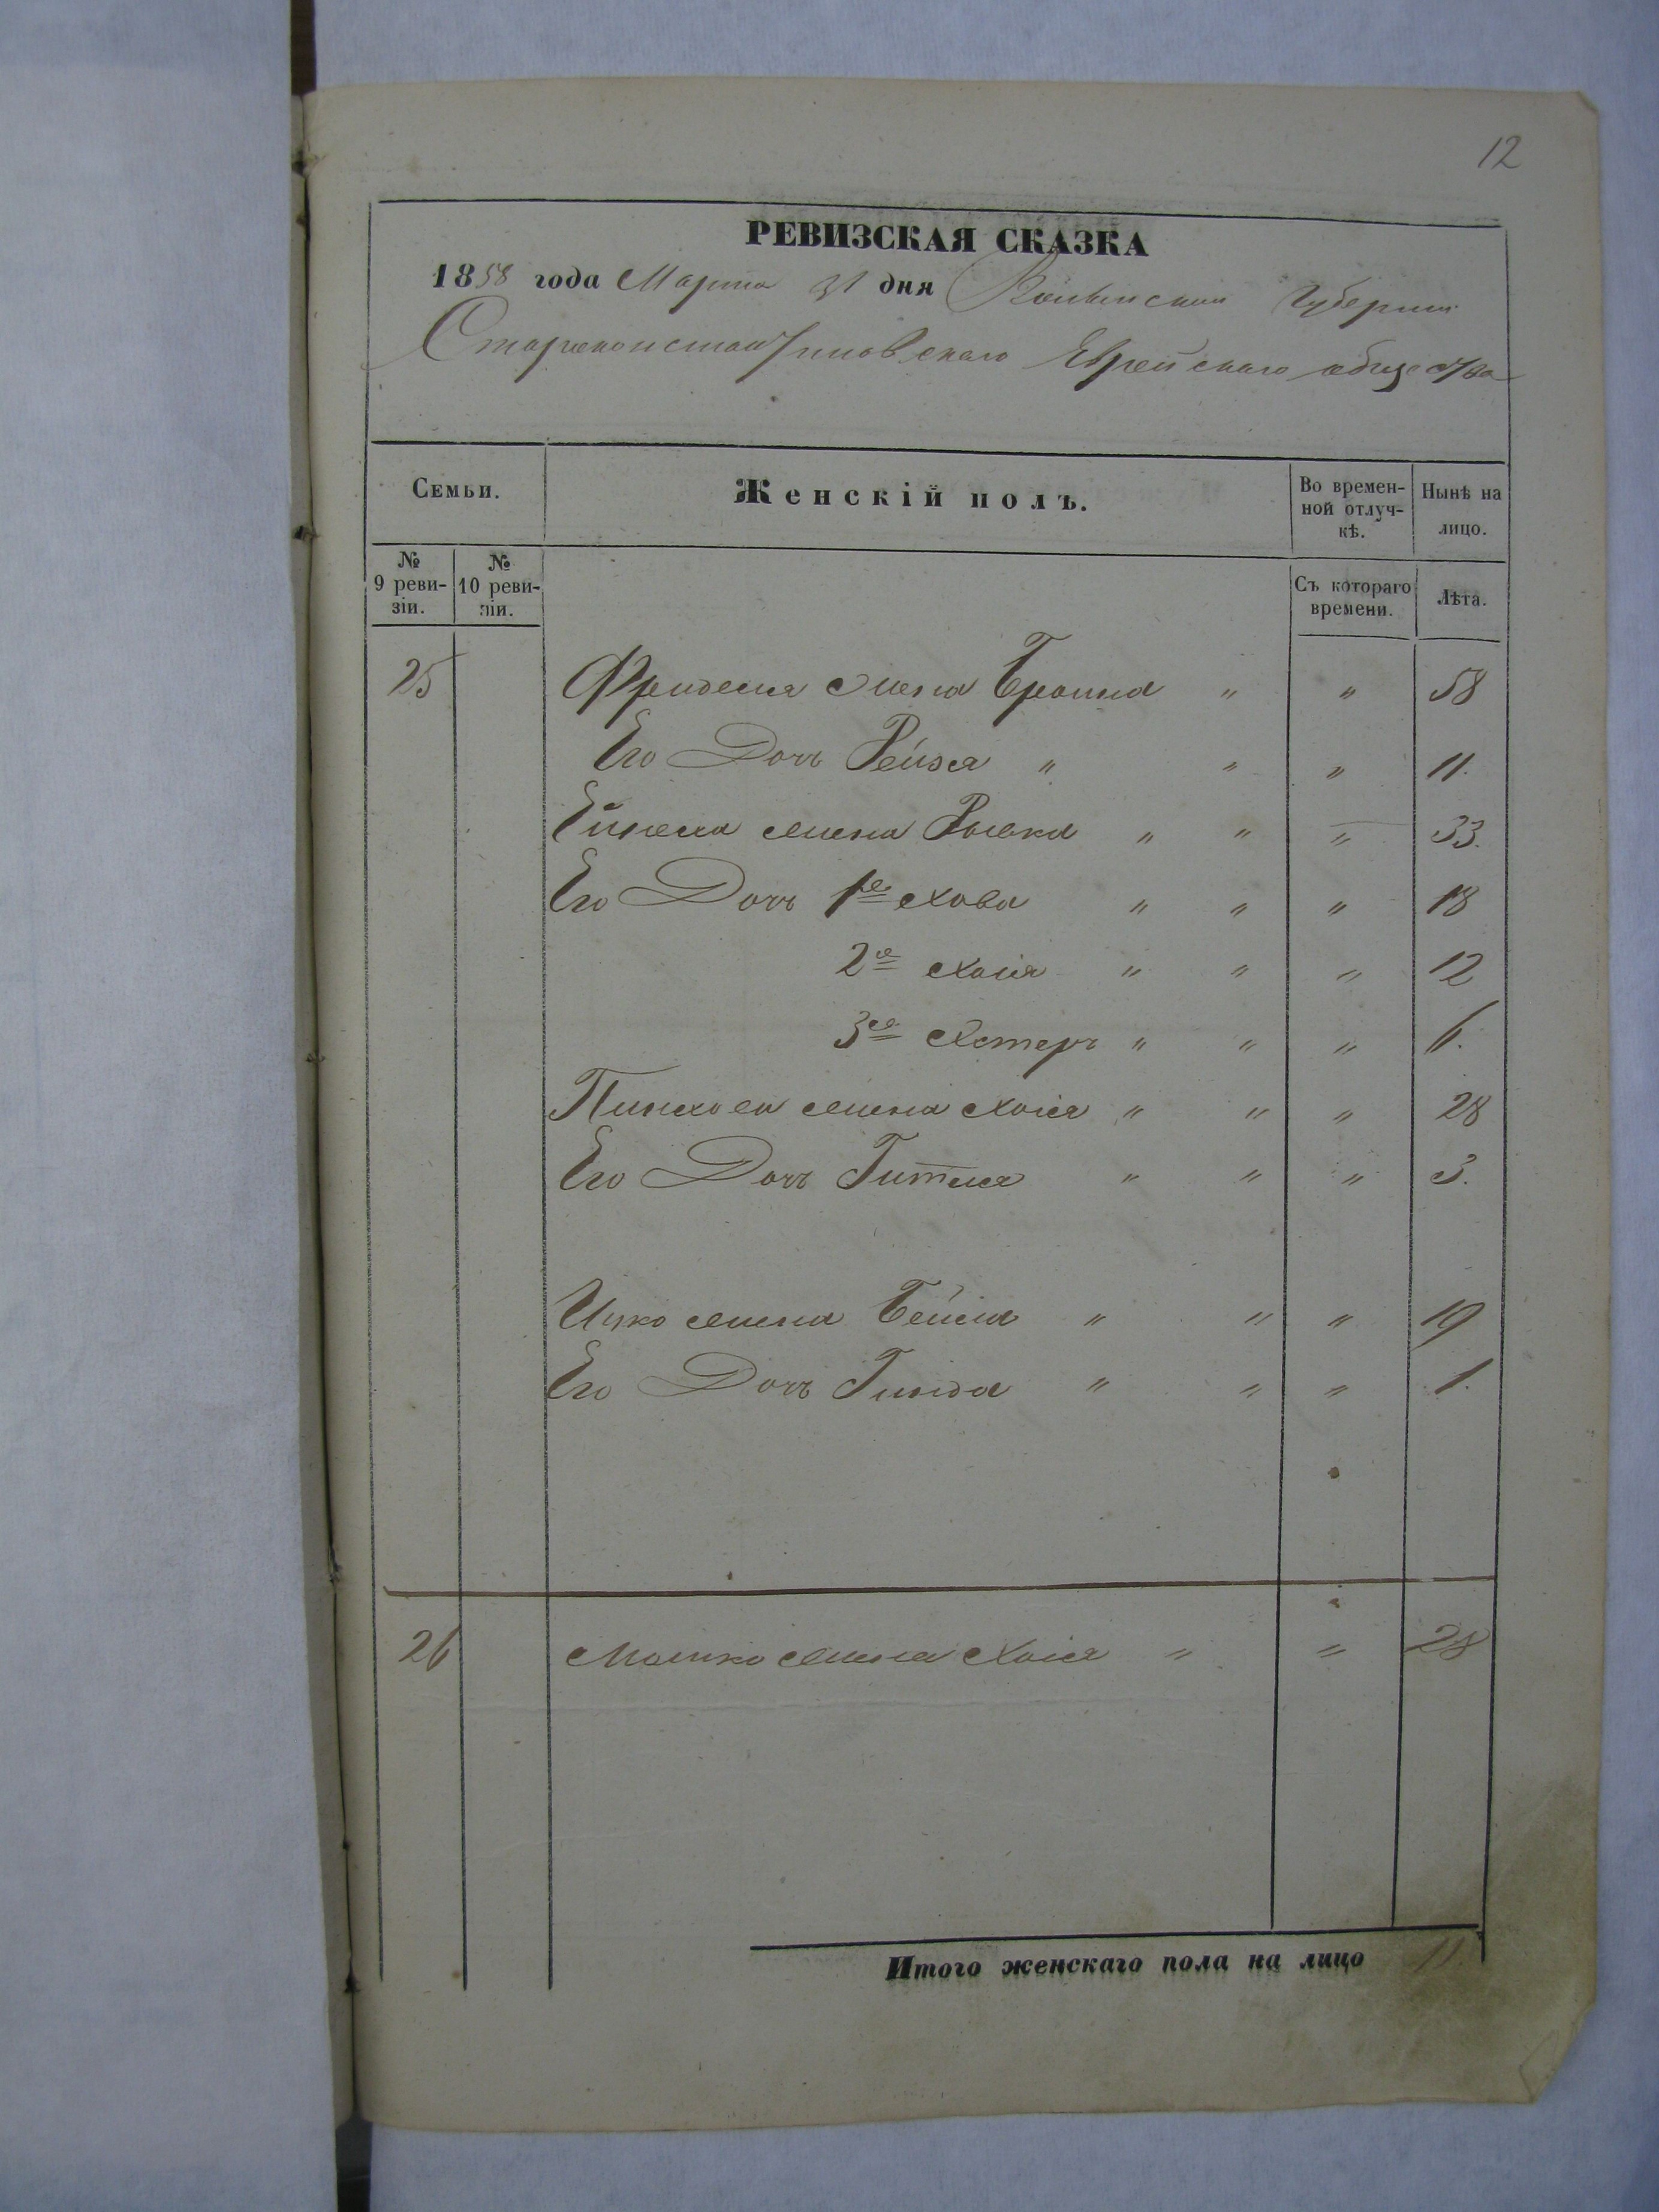 12
РЕВИЗСКАЯ СКАЗКА
1858 года Марта 31 дня Волынской Губернии
Староконстантиновскаго Еврейскаго общества
Семьи. Женскій полъ. Во времен- Нынѣ на
ной отлуч- лицо.
кѣ.
№ № Съ котораго Лѣта.
9 реви- 10 реви- времени.
зіи. зіи.
25 Фроима жена Броша " " 58
Его Дочь Рейзя " " " 11.
жена Рывка " " " 33.
Его Дочь 1я Хова " " " 18
2я Хаія " " " 12
3я Эстеръ " " " 6.
Пинхоса жена Хаія " " " 28
Его Дочь Гитля " " " 3.
Ицко жена Бейла " " " 19
Его Дочь Гинда " " " 1.
26 Мошко жена Хаія " " 28
Итого женскаго пола на лицо 11.